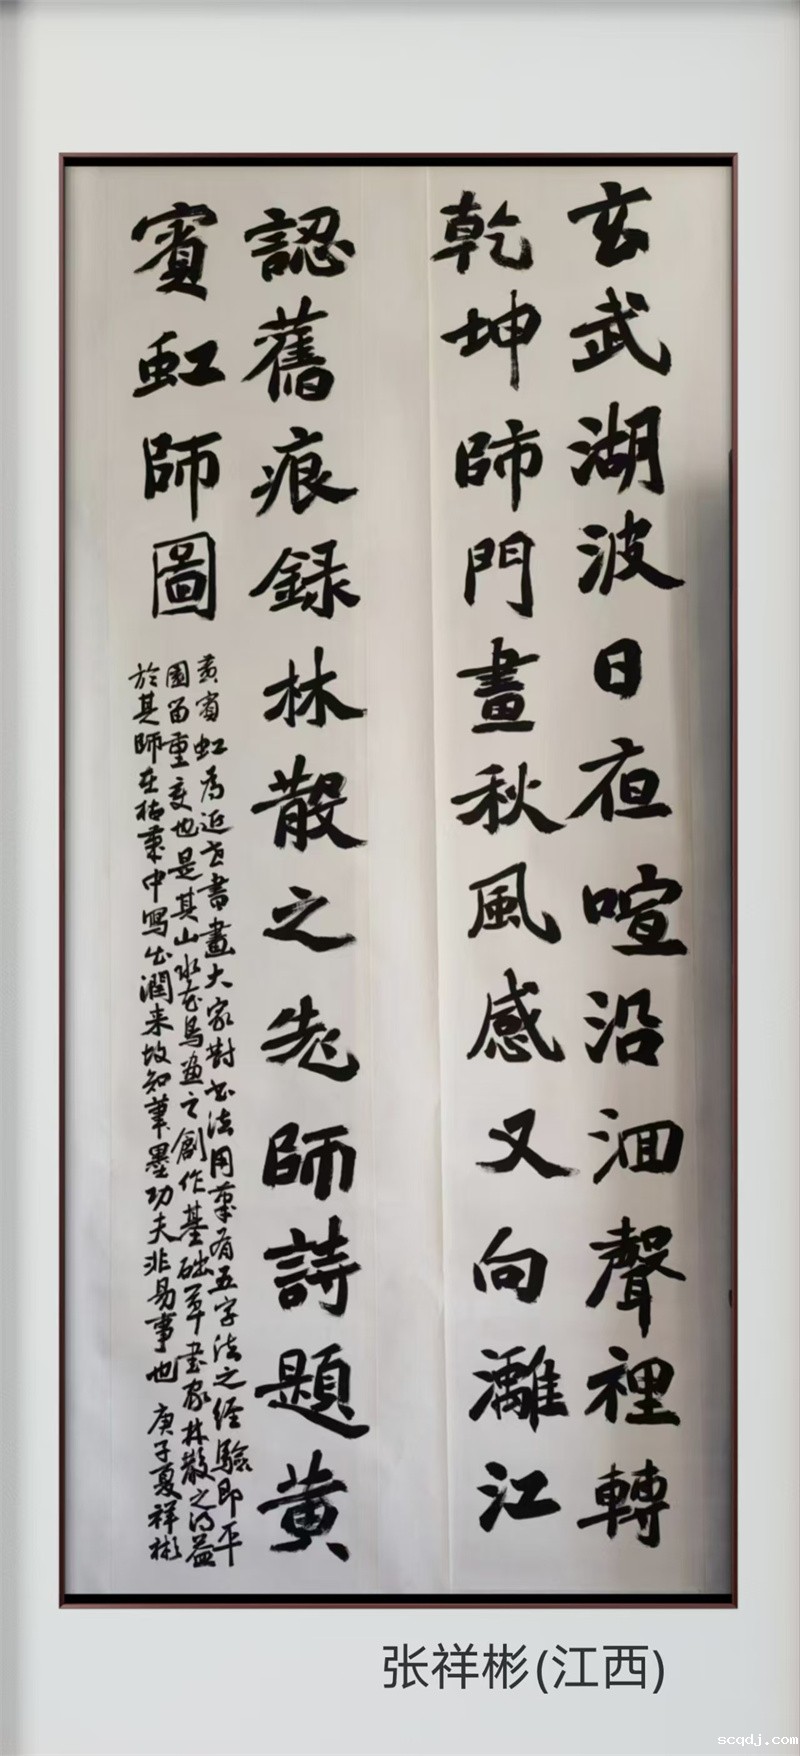 玄武湖波日夜喧沿洄聲裡轉
乾坤師門畫秋風感又向灕江
認舊痕錄林散之先師詩題黄
賓虹師圖
黄賓虹为近世書畫大家對书法用筆有五字法之经驗即平
圆留重变也是其山水花鸟画之創作基础草書家林散之得益
於其師在枯筆中寫出潤来故知筆墨功夫非易事也 庚子夏祥彬
张祥彬(江西)
scqdj.com